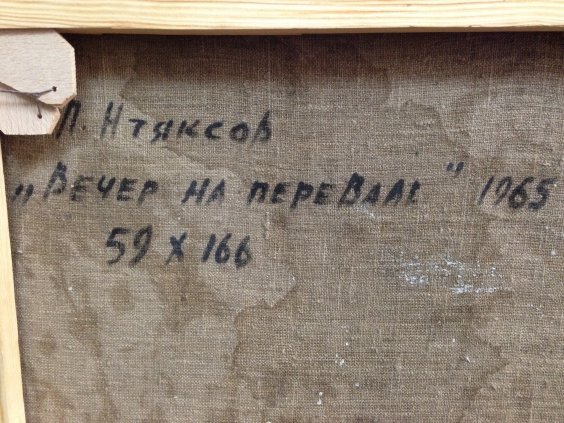 Л. Нтяксов
„Вечер на перевале" 1965
59 х 166